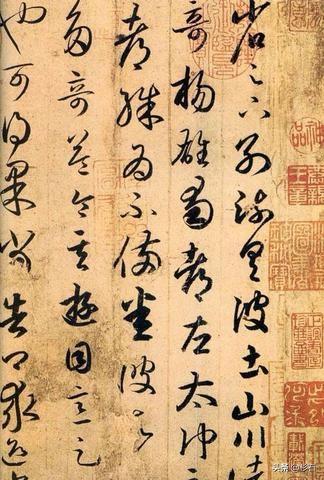 省足下別疏具彼土山川諸
奇楊雄蜀都左太沖三
都殊為不備悉彼故
多奇益令其遊目意足
也可得果當告卿求迎
神品
头条 @杉石